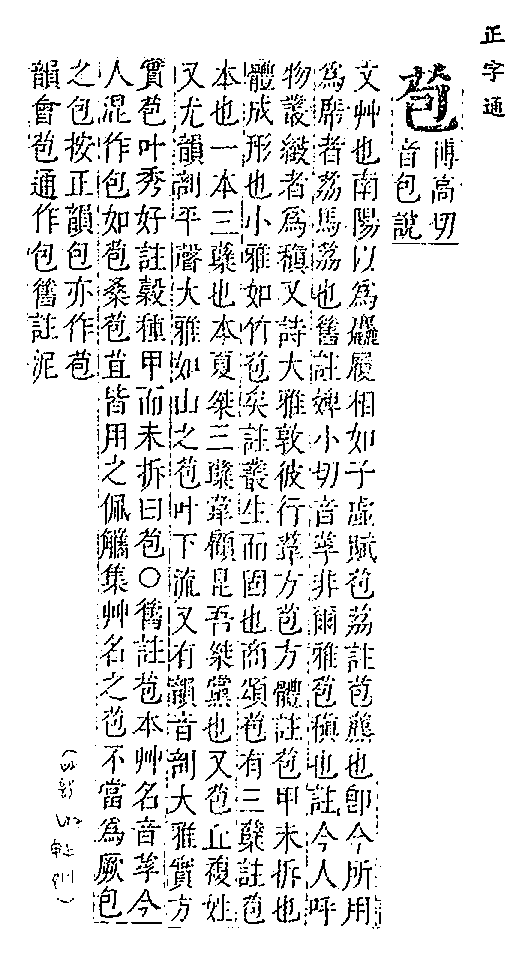 正字通
苞
博高切
音包說
文艸也南陽以為麤履相如子虛賦苞荔註苞藨也卽今所用
為席者荔馬荔也舊註婢小切音莩非爾雅苞稹也註今人呼
物叢緻者為稹又詩大雅敦彼行葦方苞方體註苞甲未拆也
體成形也小雅如竹苞矣註叢生而固也商頌苞有三蘖註苞
本也一本三蘖也本夏桀三蘖韋顧昆吾桀黨也又苞丘複姓
又尤韻剖平聲大雅如山之苞叶下流又有韻音剖大雅實方
實苞叶秀好註穀種甲而未拆曰苞○舊註苞本艸名音莩今
人混作包如苞桑苞苴皆用之佩觿集艸名之苞不當為厥包
之包按正韻包亦作苞
韻會苞通作包舊註泥